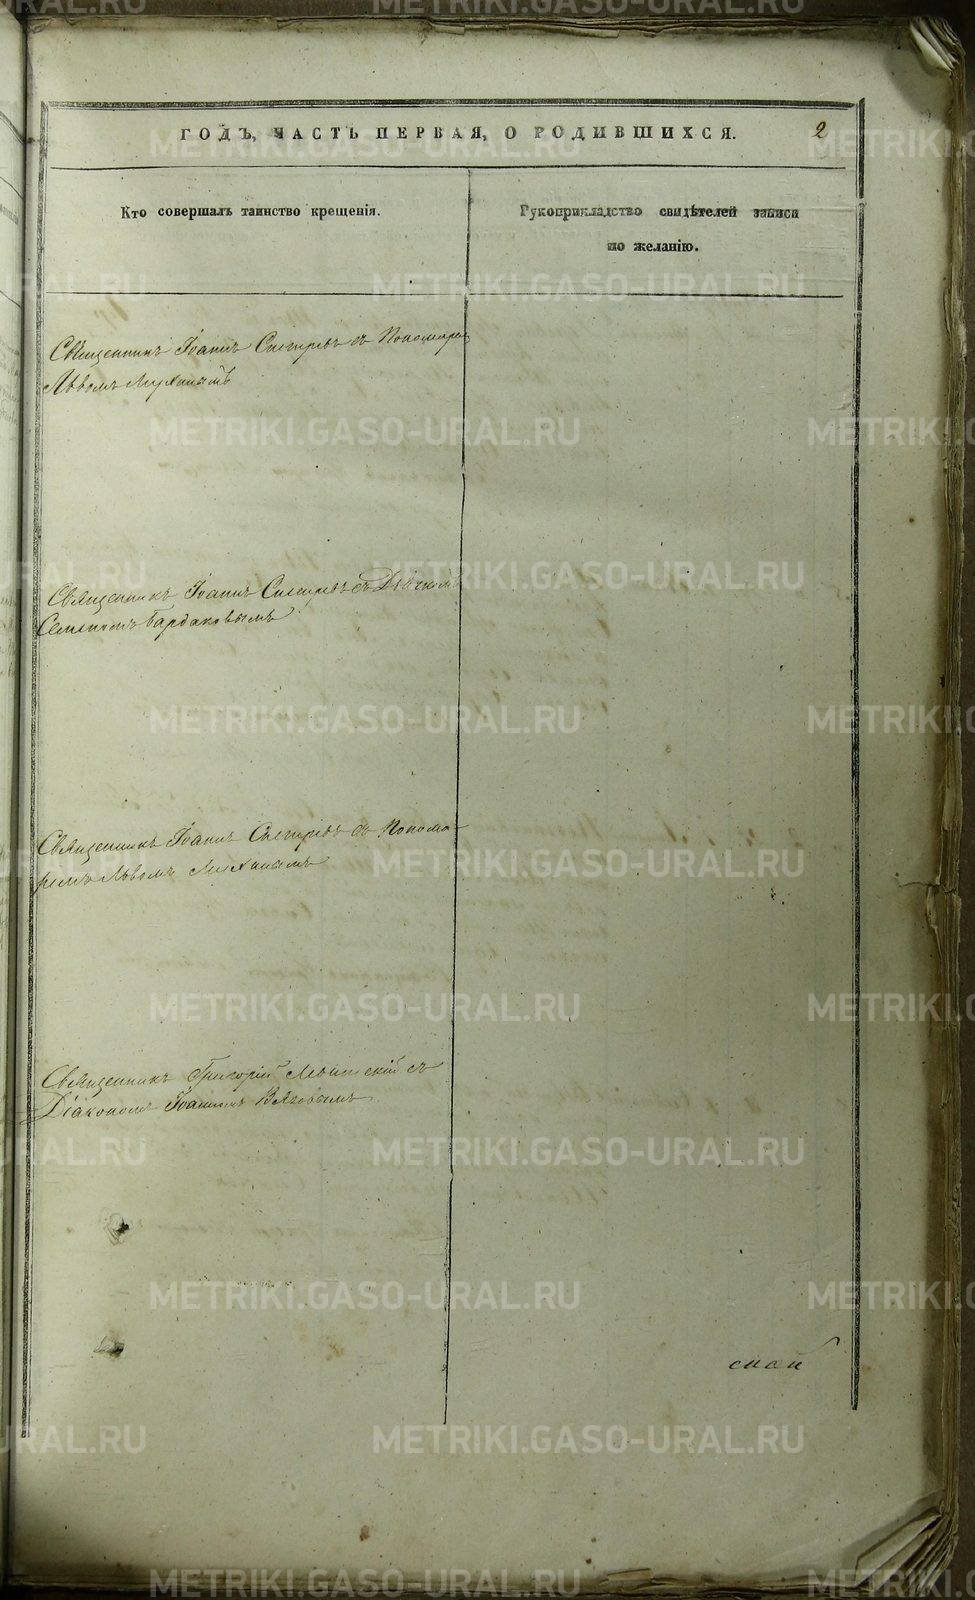 ГОДЪ, ЧАСТЬ ПЕРВАЯ, О РОДИВШИХСЯ.
2
Кто совершалъ таинство крещенія.
Рукоприкладство свидѣтелей записи
по желанію.
Священникъ Іоаннъ Снегиревъ съ Пономаремъ
Львомъ
Священникъ Іоаннъ Снегиревъ съ Дьячкомъ
Семеномъ Бардаковымъ
Священникъ Іоаннъ Снегиревъ съ Понома-
ремъ Львомъ
Священникъ Григорій съ
Діакономъ Іоанномъ
METRIKI.GASO-URAL.RU